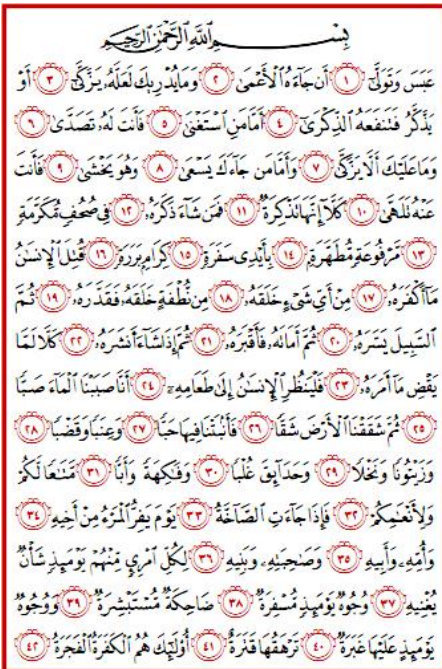 بِسْمِ ٱللَّهِ ٱلرَّحْمَٰنِ ٱلرَّحِيمِ
عَبَسَ وَتَوَلَّىٰٓ ١ أَن جَآءَهُ ٱلْأَعْمَىٰ ٢ وَمَا يُدْرِيكَ لَعَلَّهُۥ يَزَّكَّىٰٓ ٣ أَوْ
يَذَّكَّرُ فَتَنفَعَهُ ٱلذِّكْرَىٰٓ ٤ أَمَّا مَنِ ٱسْتَغْنَىٰ ٥ فَأَنتَ لَهُۥ تَصَدَّىٰ ٦
وَمَا عَلَيْكَ أَلَّا يَزَّكَّىٰ ٧ وَأَمَّا مَن جَآءَكَ يَسْعَىٰ ٨ وَهُوَ يَخْشَىٰ ٩ فَأَنتَ
عَنْهُ تَلَهَّىٰ ١٠ كَلَّآ إِنَّهَا تَذْكِرَةٌ ١١ فَمَن شَآءَ ذَكَرَهُۥ ١٢ فِى صُحُفٍ مُّكَرَّمَةٍ
١٣ مَّرْفُوعَةٍ مُّطَهَّرَةٍۭ ١٤ بِأَيْدِى سَفَرَةٍ ١٥ كِرَامٍۭ بَرَرَةٍ ١٦ قُتِلَ ٱلْإِنسَٰنُ
مَآ أَكْفَرَهُۥ ١٧ مِنْ أَىِّ شَىْءٍ خَلَقَهُۥ ١٨ مِن نُّطْفَةٍ خَلَقَهُۥ فَقَدَّرَهُۥ ١٩ ثُمَّ
ٱلسَّبِيلَ يَسَّرَهُۥ ٢٠ ثُمَّ أَمَاتَهُۥ فَأَقْبَرَهُۥ ٢١ ثُمَّ إِذَا شَآءَ أَنشَرَهُۥ ٢٢ كَلَّا لَمَّا
يَقْضِ مَآ أَمَرَهُۥ ٢٣ فَلْيَنظُرِ ٱلْإِنسَٰنُ إِلَىٰ طَعَامِهِۦٓ ٢٤ أَنَّا صَبَبْنَا ٱلْمَآءَ صَبًّا
٢٥ ثُمَّ شَقَقْنَا ٱلْأَرْضَ شَقًّا ٢٦ فَأَنۢبَتْنَا فِيهَا حَبًّا ٢٧ وَعِنَبًا وَقَضْبًا ٢٨
وَزَيْتُونًا وَنَخْلًا ٢٩ وَحَدَآئِقَ غُلْبًا ٣٠ وَفَٰكِهَةً وَأَبًّا ٣١ مَّتَٰعًا لَّكُمْ
وَلِأَنْعَٰمِكُمْ ٣٢ فَإِذَا جَآءَتِ ٱلصَّآخَّةُ ٣٣ يَوْمَ يَفِرُّ ٱلْمَرْءُ مِنْ أَخِيهِ ٣٤
وَأُمِّهِۦ وَأَبِيهِ ٣٥ وَصَٰحِبَتِهِۦ وَبَنِيهِ ٣٦ لِكُلِّ ٱمْرِئٍ مِّنْهُمْ يَوْمَئِذٍ شَأْنٌ
يُغْنِيهِ ٣٧ وُجُوهٌ يَوْمَئِذٍ مُّسْفِرَةٌ ٣٨ ضَاحِكَةٌ مُّسْتَبْشِرَةٌ ٣٩ وَوُجُوهٌ
يَوْمَئِذٍ عَلَيْهَا غَبَرَةٌ ٤٠ تَرْهَقُهَا قَتَرَةٌ ٤١ أُو۟لَٰٓئِكَ هُمُ ٱلْكَفَرَةُ ٱلْفَجَرَةُ ٤٢